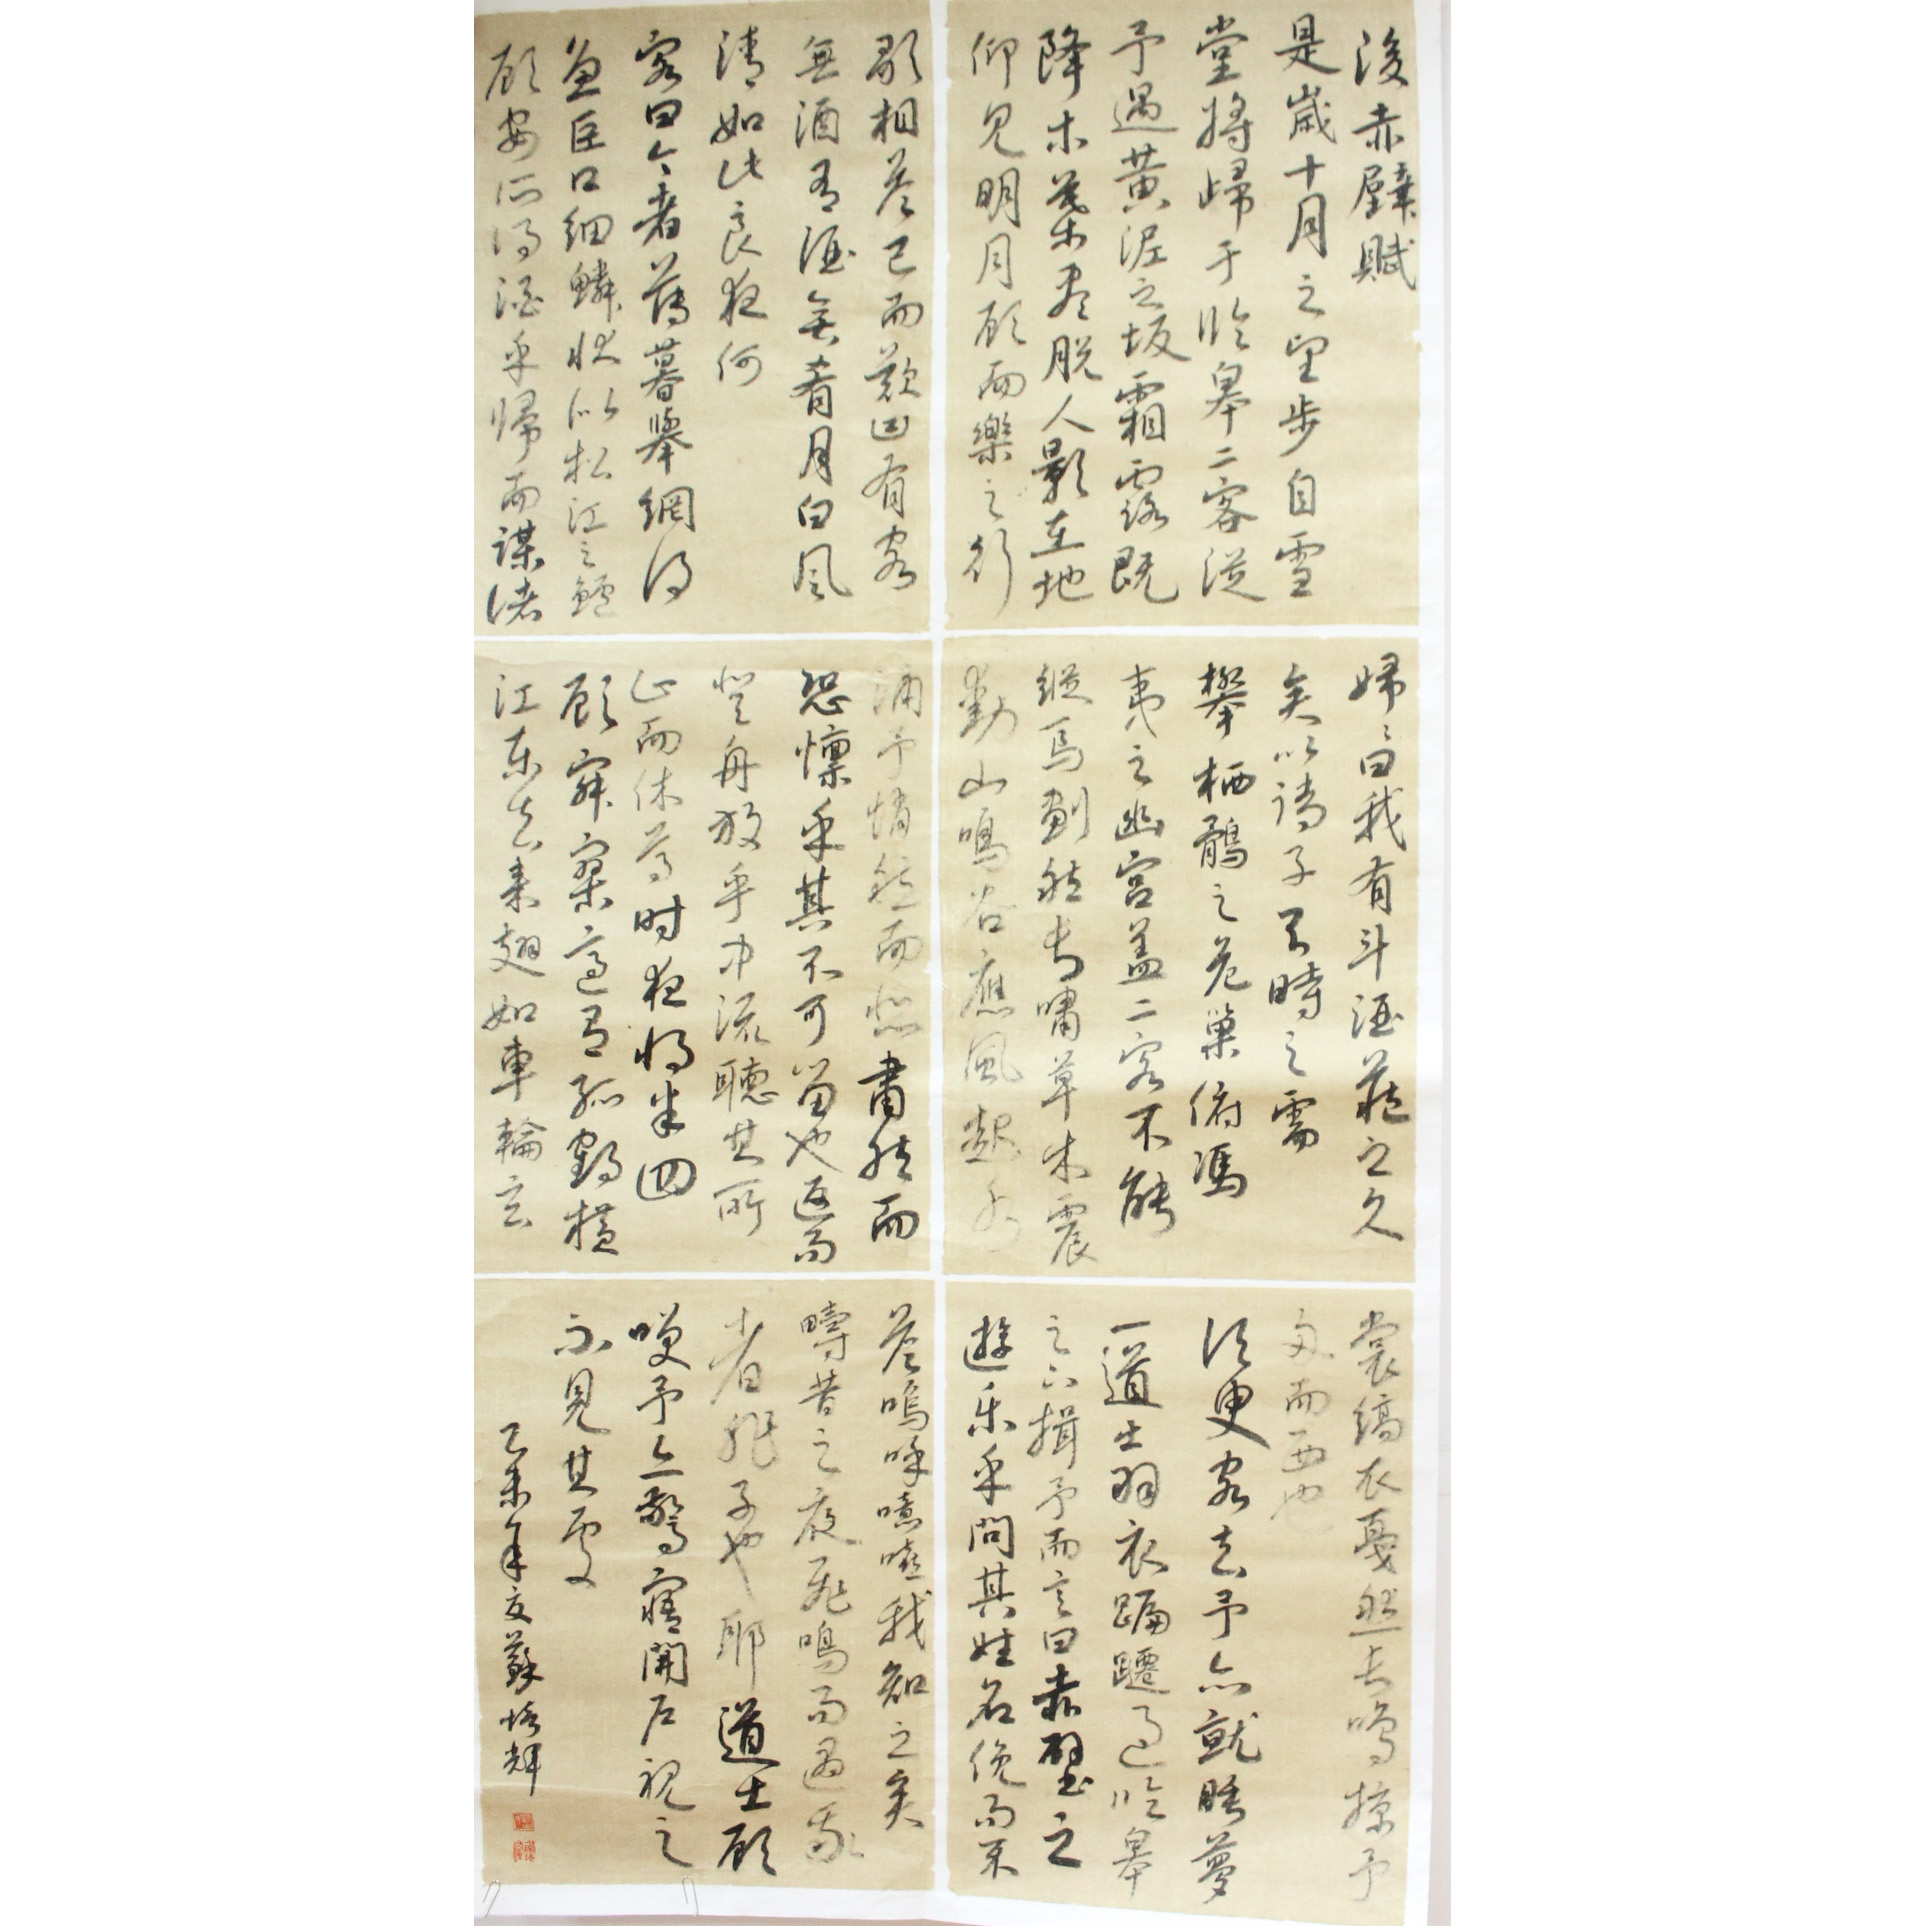 後赤壁賦
是歲十月之望步自雪
堂將歸于臨皋二客從
予過黃泥之坂霜露既
降木葉盡脫人影在地
仰見明月顧而樂之行
歌相答已而歎曰有客
無酒有酒無肴月白風
清如此良夜何
客曰今者薄暮舉網得
魚巨口細鱗狀似松江之鱸
顧安所得酒乎歸而謀諸
婦〻曰我有斗酒藏之久
矣以待子不時之需
攀栖鶻之危巢俯馮
夷之幽宮蓋二客不能
縱焉劃然长嘯草木震
動山鳴谷應風起水
涌予悄然而悲肅然而
恐懍乎其不可留也返而
登舟放乎中流聽其所
止而休焉时夜將半四
顧寂寥適有孤鶴橫
江东去来翅如車輪玄
裳縞衣戛然长鳴掠予
舟而西也
須臾客去予亦就睡夢
一道士羽衣蹁躚過臨皋
之下揖予而言曰赤壁之
遊乐乎問其姓名俛而不
答嗚呼噫嘻我知之矣
疇昔之夜飛鳴而過我
者非子也耶道士顧
笑予亦驚寤開戶視之
不見其處
乙未年夏蘇培輝